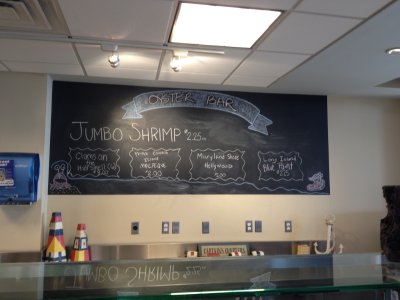 OYSTER BAR
JUMBO SHRIMP $2.25 ea.
Clams on
the
Half Shell
Prince Edward
Island
Malpeque
$2.00
Maryland Shore
Hollywood
Long Island
Blue Point
CAPTAIN'S QUARTERS